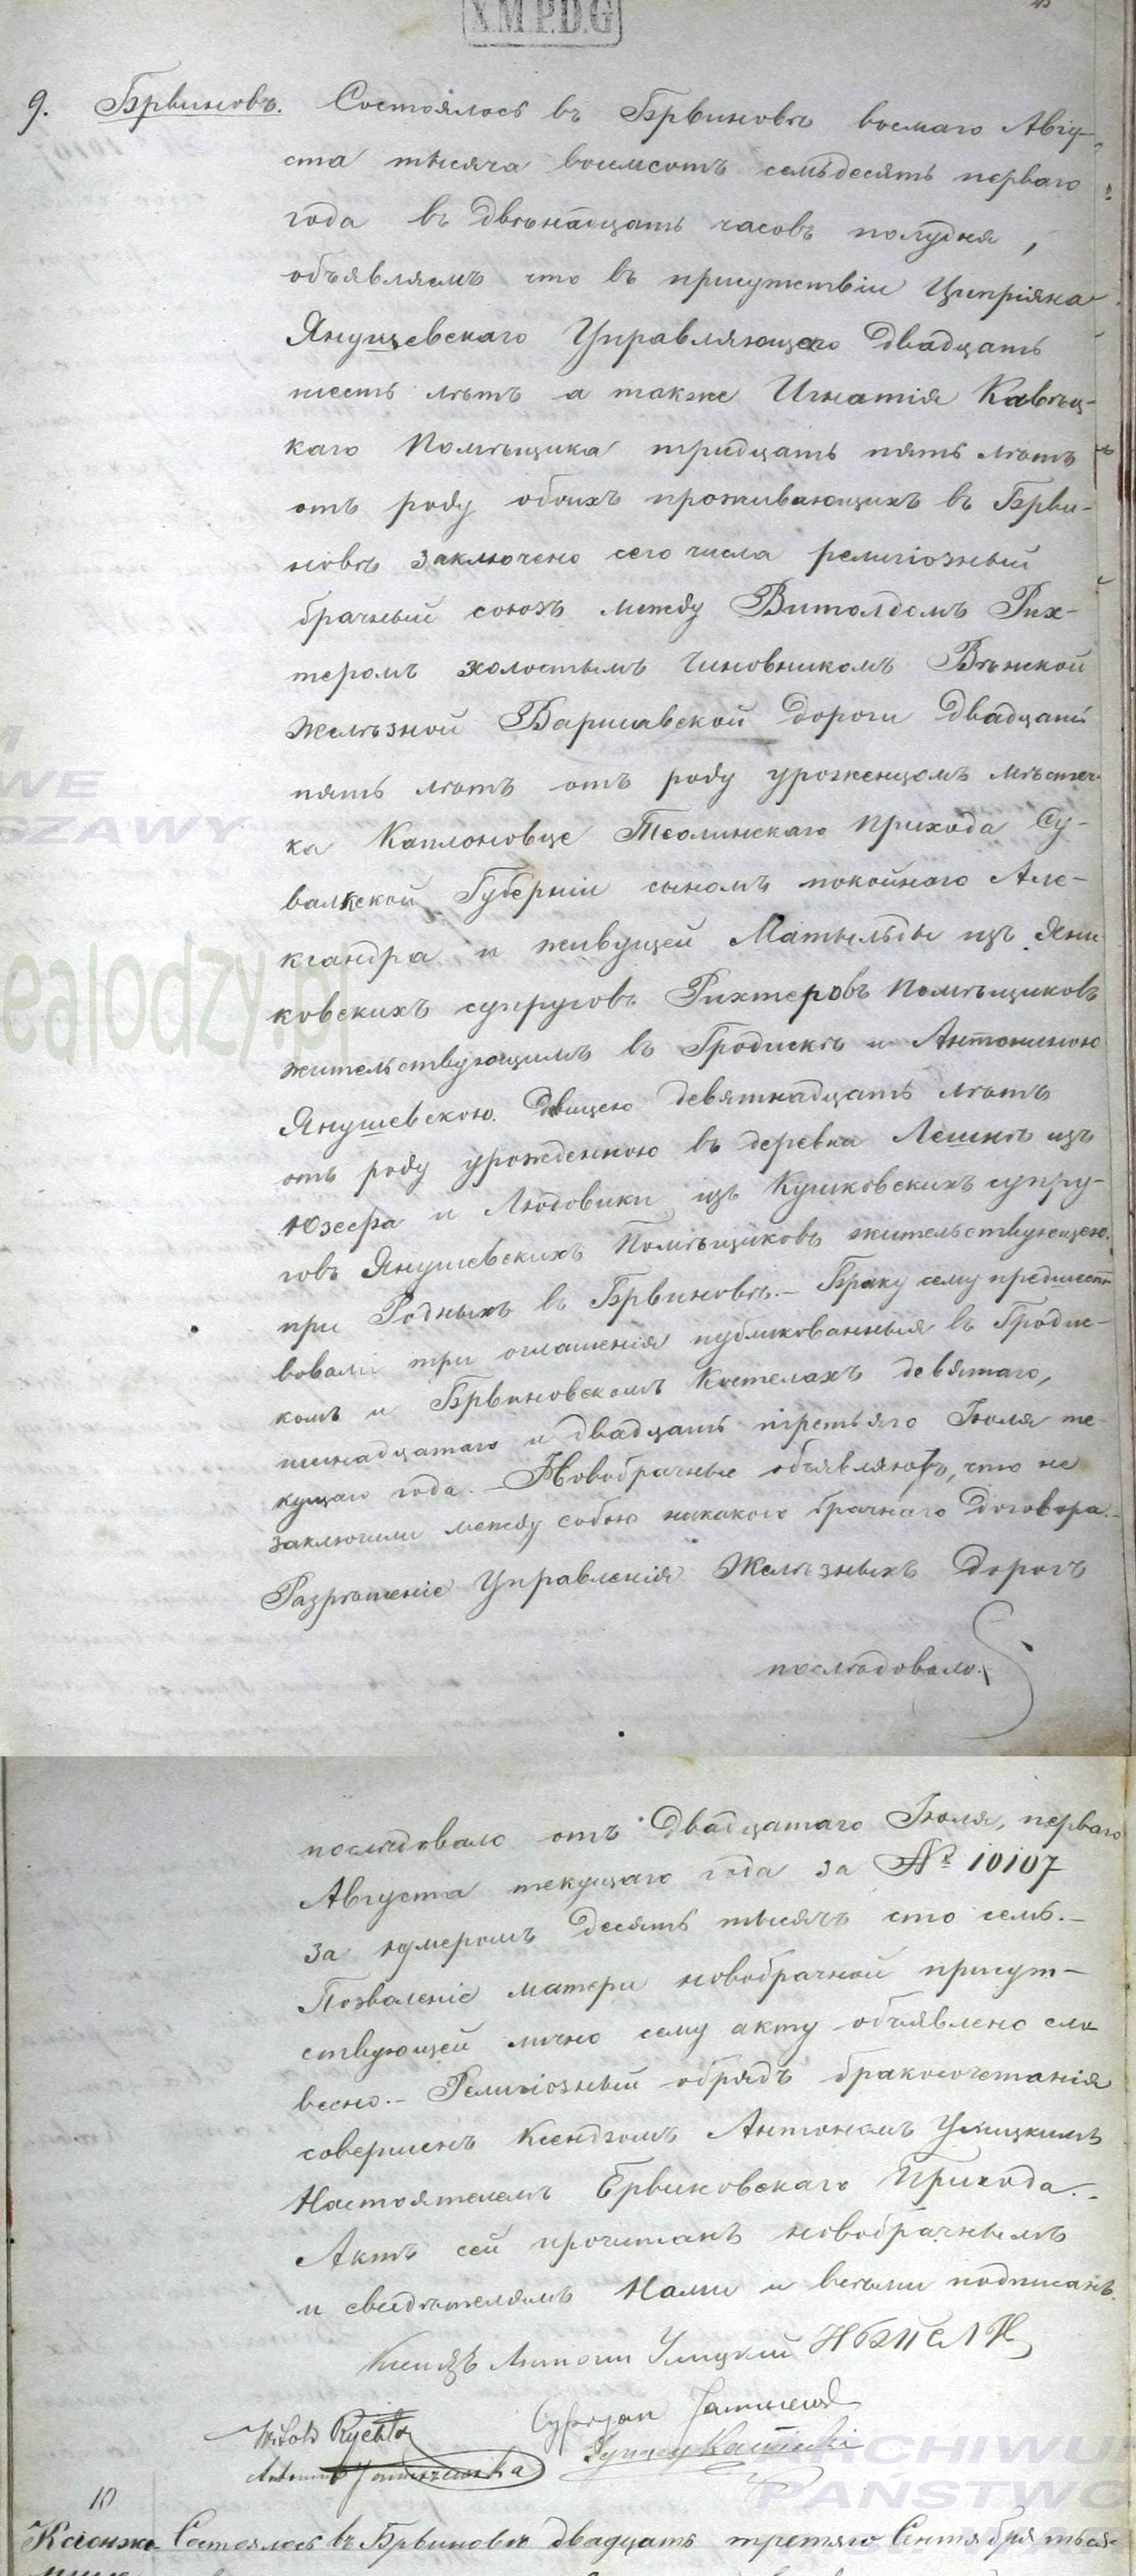 X.M.P.D.G
9. Брвиновъ. Состоялось въ Брвиновѣ восмаго Авгу-
ста тысяча восемсотъ семьдесятъ перваго
года въ двѣнадцать часовъ полудня,
объявляемъ что въ присутствіи Ципріяна
Янушевскаго Управляющаго двадцать
шесть лѣтъ а также Игнатія Кавѣц-
каго Помѣщика тридцать пять лѣтъ
отъ роду обоихъ проживающихъ въ Брви-
новѣ заключено сего числа религіозный
брачный союзъ между Витолдомъ Рих-
теромъ холостымъ Чиновникомъ Вѣнской
Желѣзной Варшавской дороги двадцать
пять лѣтъ отъ роду уроженцомъ мѣстеч-
ка Каплоновце Теолинскаго Прихода Су-
валкской Губерніи сыномъ покойнаго Але-
ксандра и живущей Матыльды изъ Яни-
ковскихъ супруговъ Рихтеровъ Помѣщиковъ
жительствующимъ въ Гродискѣ и Антониною
Янушевскою двицею девятнадцать лѣтъ
отъ роду урожденною въ деревна Лешнѣ изъ
Юзефа и Людовики изъ Кушковскихъ супру-
говъ Янушевскихъ Помѣщиковъ жительствующею
при Родныхъ въ Брвиновѣ.– Браку сему предшест-
вовали три оглашенія публикованныя въ Гродис-
комъ и Брвиновскомъ Костелахъ девятаго,
шинадцатаго и двадцать третьяго Іюля те-
кущаго года.– Новобрачные объявляютъ, что не
заключили между собою никакого брачнаго договора.–
Разрѣшеніе Управленія Желѣзныхъ Дорогъ
послѣдовало.
послѣдовало отъ двадцатаго Іюля, перваго
Августа текущаго года за № 10107
за нумеромъ десять тысячъ сто семь.–
Позволеніе матери новобрачной присут-
ствующей лично сему акту объявлено сло
весно.– Религіозный обрядъ бракосочетанія
совершенъ Ксендзомъ Антономъ Улицкимъ
Настоятелемъ Брвиновскаго Прихода.–
Актъ сей прочитанъ новобрачнымъ
и свидѣтелямъ Нами и всѣми подписанъ.
Ксендзъ Антони Улицкій НБПСАН
Witold Rychter Cypryan Januszewski
Antonina Januszewska Ignacy Kawiecki
10
Ксіонже- Состоялось въ Брвиновѣ двадцать третяго Сентября тыся-
нице